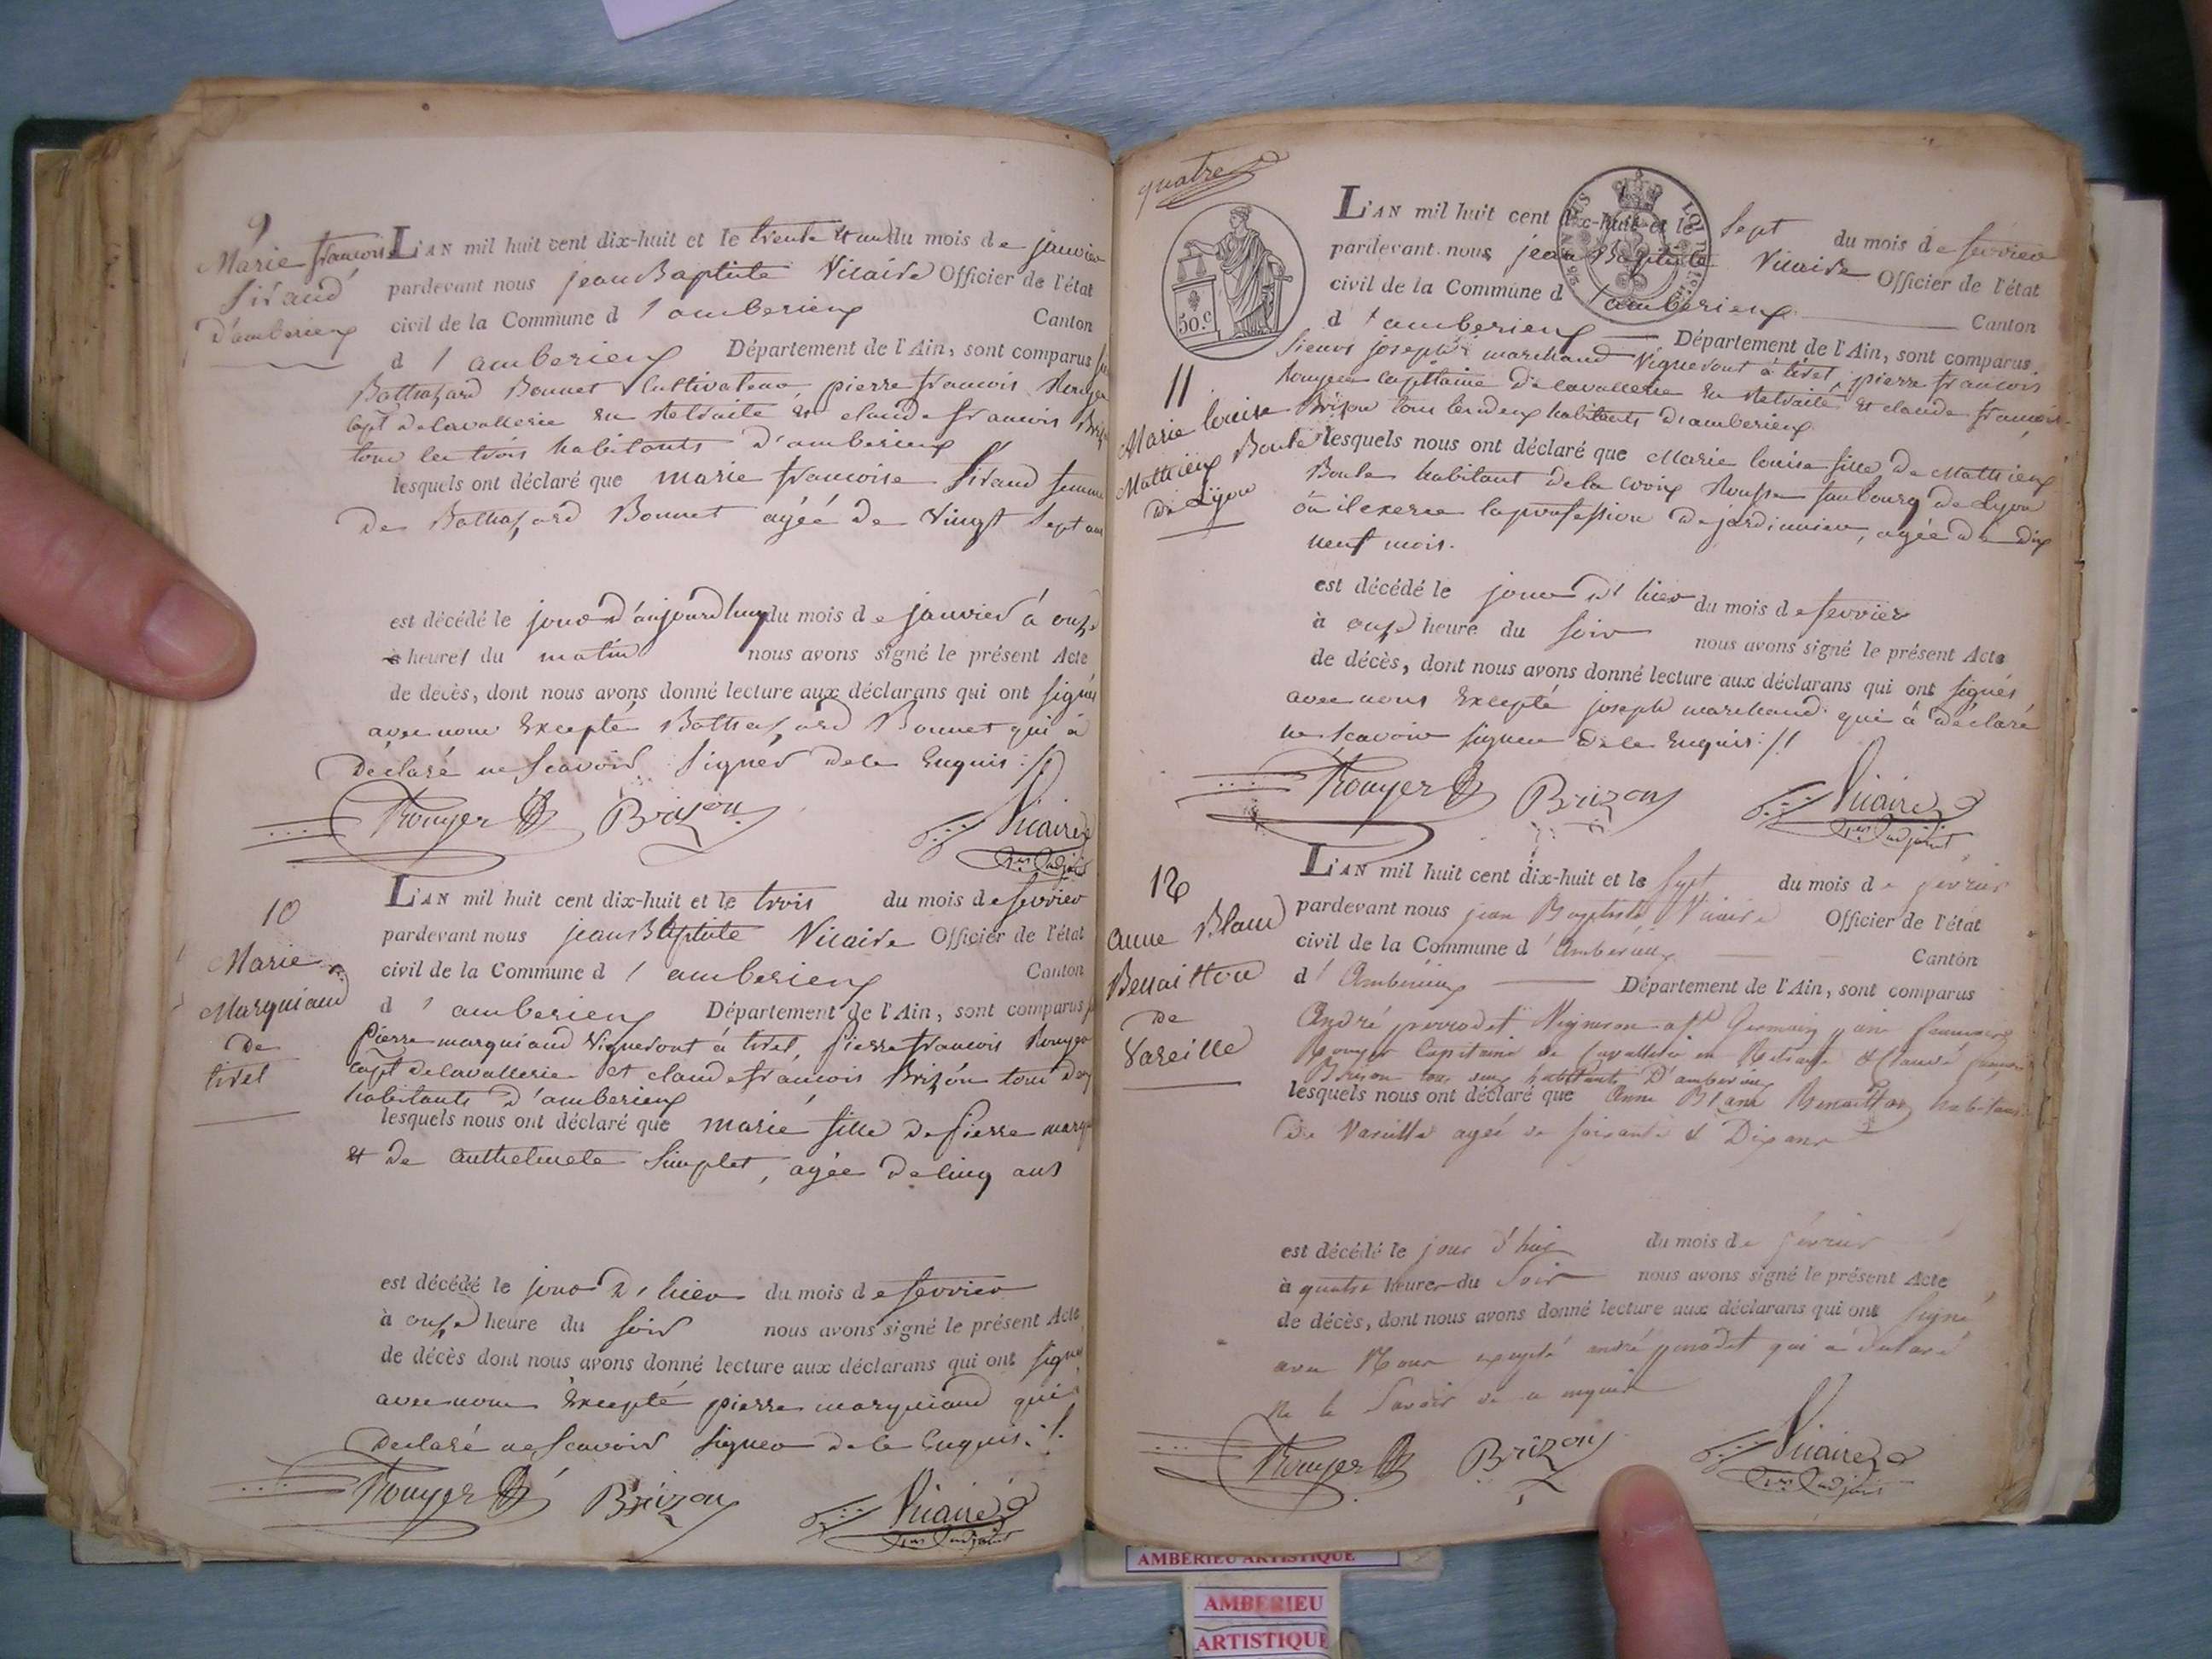 9
Marie francoise
Sirand
d'amberieux
L'AN mil huit cent dix-huit et le trente et un du mois de janvier
pardevant nous jean Baptiste Vicaire Officier de l'état
civil de la Commune d'amberieux Canton
d'amberieux Département de l'Ain, sont comparus
Balthazard Bonnet Cultivateur, pierre francois Rouyer
capt de cavallerie en Retraite et claude francois
tous les trois habitants d'amberieux
lesquels ont déclaré que marie francoise Sirand femme
De Balthazard Bonnet agée de Vingt Sept ans
est décédé le jour d'aujourdhuy du mois de janvier à onze
heures du matin nous avons signé le présent Acte
de décès, dont nous avons donné lecture aux déclarans qui ont signés
avec nous Excepté Balthazard Bonnet qui à
Déclaré ne scavoir Signer de ce Enquis
Rouyer Brizon Vicaire
1er adjoint
10
Marie
Marquiand
De
tiret
L'AN mil huit cent dix-huit et le trois du mois de fevrier
pardevant nous jean Baptiste Vicaire Officier de l'état
civil de la Commune d'amberieux Canton
d'amberieux Département de l'Ain, sont comparus
Pierre marquiand Vigneront à tiret, pierre francois Rouyer
capt de cavallerie et claude francois Brizon tous deux
habitants d'amberieux
lesquels nous ont déclaré que marie fille de pierre
et de Anthelmete Simplet, agée de cinq ans
est décédé le jour d'hier du mois de fevrier
à onze heure du soir nous avons signé le présent Acte
de décès dont nous avons donné lecture aux déclarans qui ont
avec nous Excepté pierre marquiand qui
Declaré ne scavoir signer de ce Enquis
Rouyer Brizon Vicaire
1er adjoint
quatre
50.c
L'AN mil huit cent dix-huit et le Sept du mois de fevrier
pardevant nous jean Baptiste Vicaire Officier de l'état
civil de la Commune d'amberieux Canton
d'amberieux Département de l'Ain, sont comparus
Sieurs joseph marchand Vigneront à tiret, pierre francois
Rouyer capittaine de cavallerie en Retraite et claude francois
Brizon tous les deux habitants d'amberieux
11
Marie louise
Mathieux Boule
De Lyon
lesquels nous ont déclaré que Marie louise fille de Mathieux
Boule habitant de la croix Rousse faubourg de Lyon
où il exerce la profession de jardinnier, agée de dix
neuf mois.
est décédé le jour d'hier du mois de fevrier
à onze heure du soir nous avons signé le présent Acte
de décès, dont nous avons donné lecture aux déclarans qui ont signés
avec nous Excepté joseph marchand qui à déclaré
ne scavoir signer de ce Enquis
Rouyer Brizon Vicaire
1er adjoint
12
Anne Blanc
Benaitton
De
Vareille
L'AN mil huit cent dix-huit et le Sept du mois de fevrier
pardevant nous jean Baptiste Vicaire Officier de l'état
civil de la Commune d'Amberieux Canton
d'Amberieux Département de l'Ain, sont comparus
André perrodet Vigneron a St Germain
Rouyer Capitaine de Cavallerie en Retraite et Claude francois
Brison tous deux habitants D'amberieux
lesquels nous ont déclaré que Anne Blanc Benaitton habitant
de Vareille agée de soixante et Dix ans
est décédé le jour d'hier du mois de fevrier
à quatre heures du Soir nous avons signé le présent Acte
de décès, dont nous avons donné lecture aux déclarans qui ont Signé
avec Nous excepté andré perrodet qui a declaré
ne le Savoir de ce enquis
Rouyer Brizon Vicaire
1er adjoint
AMBERIEU ARTISTIQUE
AMBERIEU
ARTISTIQUE